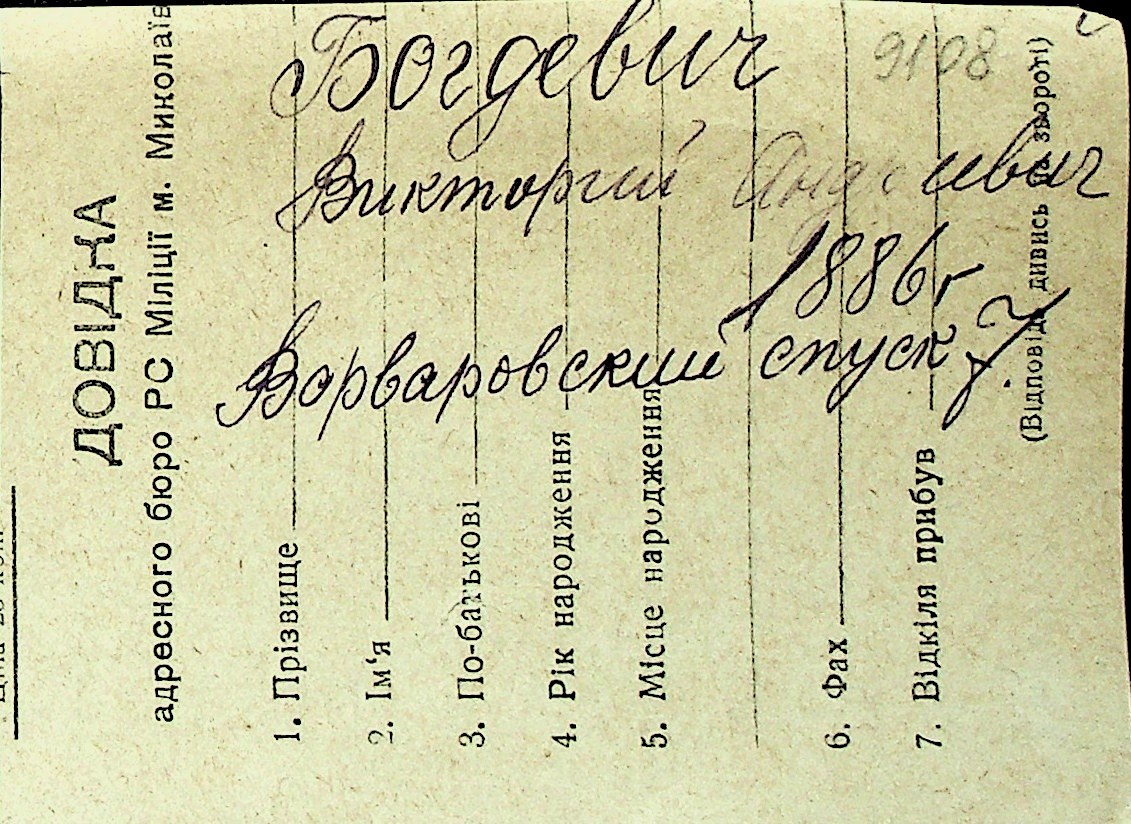 ДОВІДКА
адресного бюро РС Міліції м. Миколаїв
1. Прізвище
2. Ім'я
3. По-батькові
4. Рік народження
5. Місце народження
6. Фах
7. Відкіля прибув
(Відповідь дивись на звороті)
9108
Богдевич
Викторий
1886 г
Варваровский спуск 7.